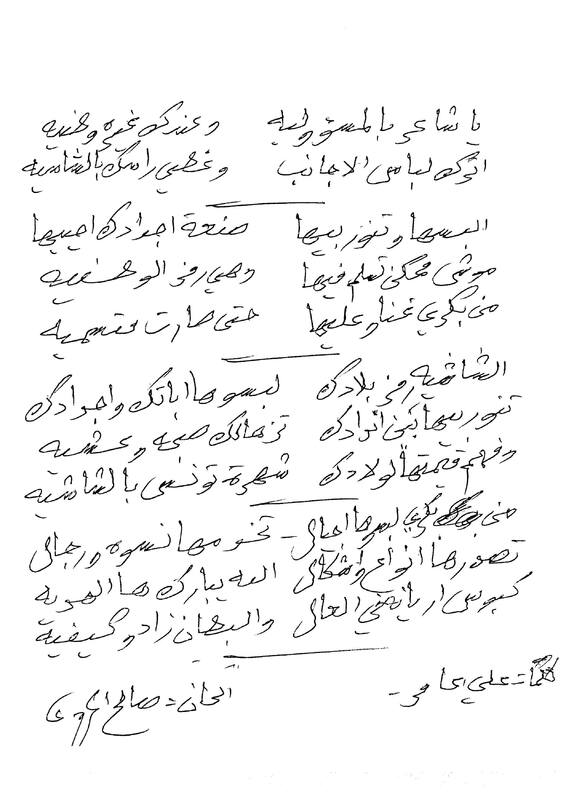 يا شاعر بالمسؤوليه وعندك غيره وطنيه
اترك لباس الاجانب وغطي راسك بالشاشيه
البسها وتنور بيها صنعة اجدادك احييها
موش ممكن تسلم فيها وهي رمز الوطنيه
من بكري غناو عليها حتى صارت رسميه
الشاشيه رمز بلادك لبسوها اباتك واجدادك
تنور بيها بين اندادك تزهالك صبحه وعشيه
وفهم قيمتها لولادك شهرة تونس بالشاشيه
من بكري لبسوها اجيال - تخدمها نسوه ورجال
تصورها انواع واشكال الله يبارك ها الهديه
كبوس اريانه في العالي والبطان زاد وكيفيه
كلمات = علي
الحان = صالح